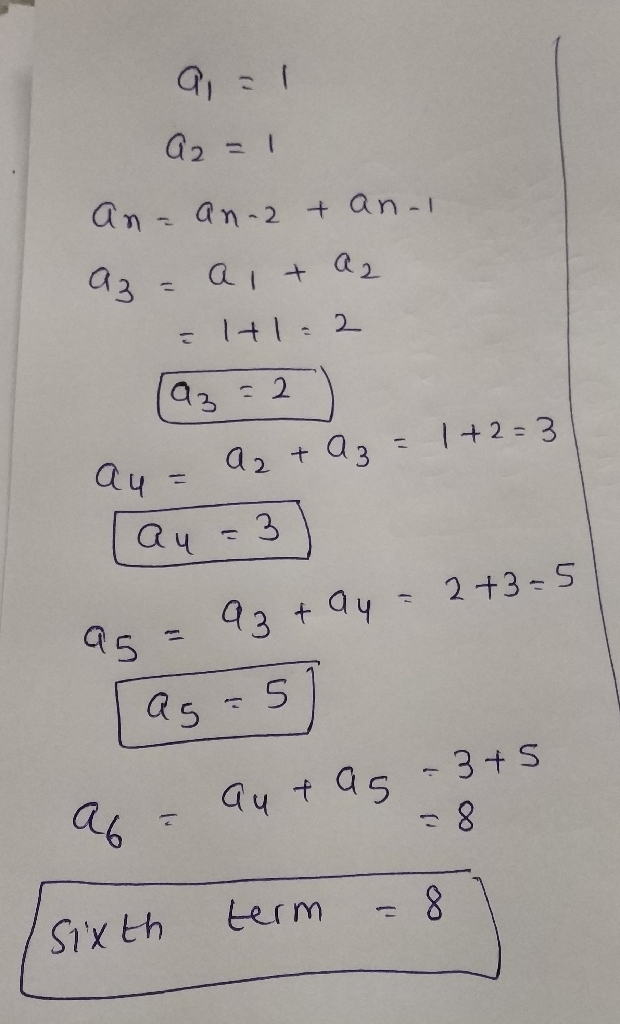 a₁ = 1
a₂ = 1
an = an-2 + an-1
a₃ = a₁ + a₂
= 1+1 = 2
a₃ = 2
a₄ = a₂ + a₃ = 1+2=3
a₄ = 3
a₅ = a₃ + a₄ = 2+3=5
a₅ = 5
a₆ = a₄ + a₅ = 3+5
= 8
Sixth term = 8